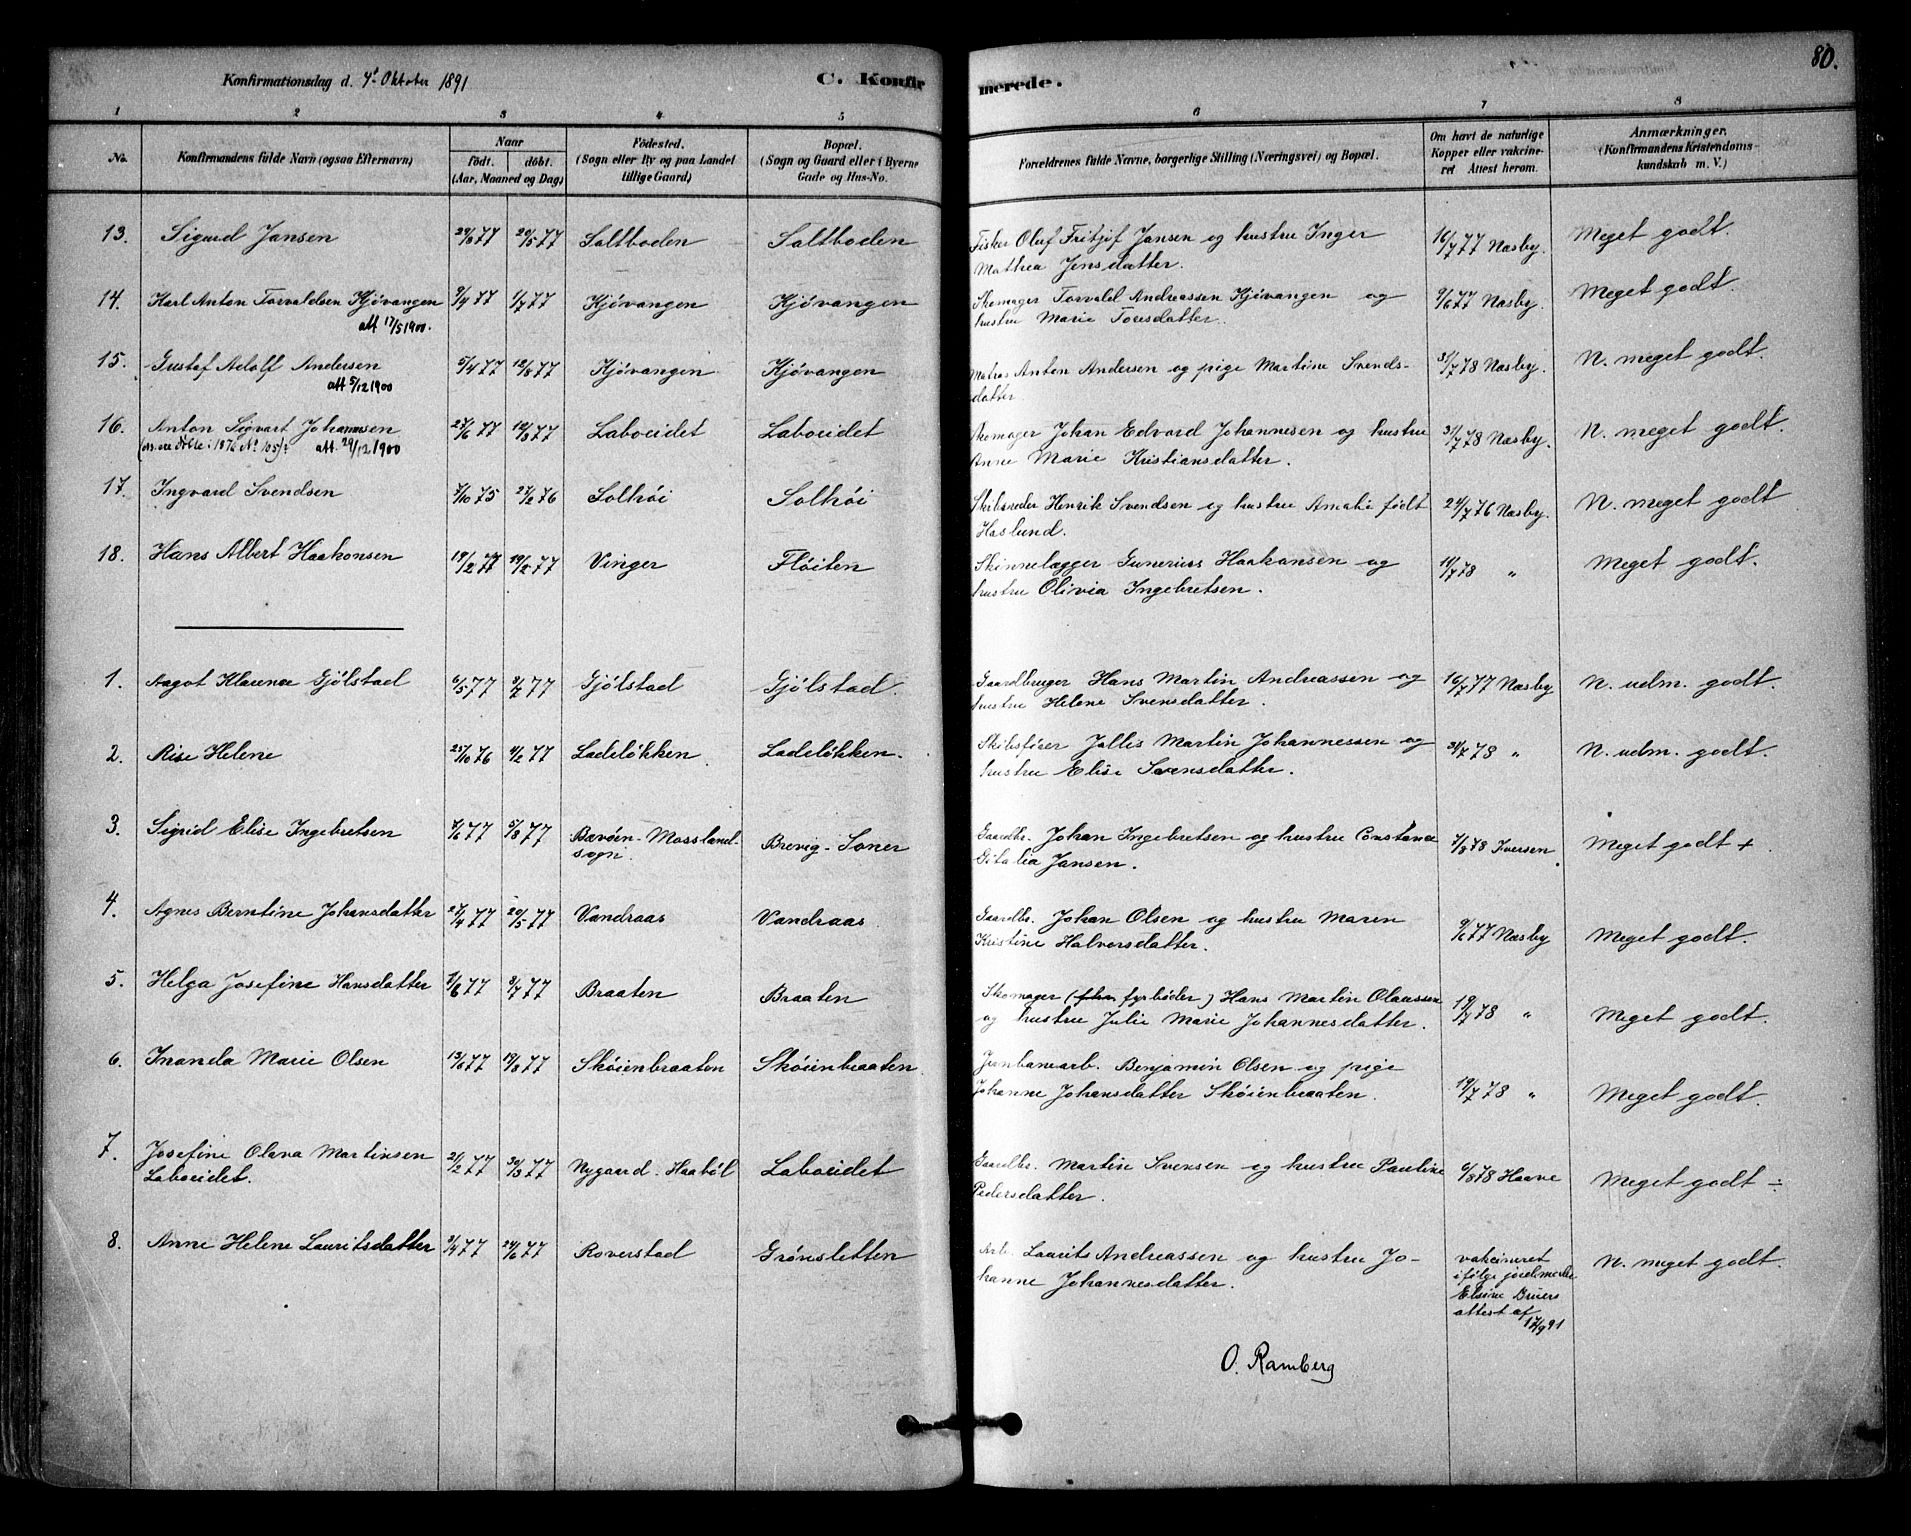 Konfirmationsdag d. 4de Oktober 1891
C. Konfir
merede.
80.
1 2 3 4 5 6 7 8
No. Konfirmandens fulde Navn (ogsaa Efternavn) Naar födt. döbt. (Aar, Maaned og Dag) Födested. (Sogn eller By og paa Landet tillige Gaard) Bopæl. (Sogn og Gaard eller i Byerne Gade og Hus-No.
Forældrenes fulde Navne, borgerlige Stilling (Næringsvei) og Bopæl. Om havt de naturlige Kopper eller vakcineret Attest herom. Anmærkninger. (Konfirmandens Kristendomskundskab m. V.)
13. Sigurd Jansen 77 20/5 77 Saltboden Saltboden Fisker Oluf Fritjof Jansen og hustru Inger 16/7 77 Næsby. Meget godt.
Mathea Jensdatter.
14. Karl Anton Torvaldsen Kjövangen 9/4 77 1/7 77 Kjövangen Kjövangen Skomager Torvald Andreassen Kjövangen og 9/6 77 Næsby. Meget godt.
att 17/5 1900. hustru Marie Toresdatter.
15. Gustaf Adolf Andersen 5/4 77 12/8 77 Kjövangen Kjövangen Matros Anton Andersen og pige Martine Svends- 31/7 78 Næsby. N. meget godt.
att 5/12 1900 datter.
16. Anton Sigvart Johannesen 23/6 77 12/8 77 Laboeidet Laboeidet Skomager Johan Edvard Johannesen og hustru 31/7 78 Næsby. N. meget godt.
att. 29/12 1900 Anne Marie Kristiansdatter.
17. Ingvard Svendsen 7/10 75 27/2 76 Solhöi Solhöi Skibsreder Henrik Svendsen og hustru Amalie födt 24/7 76 Næsby. N. meget godt
Haslund.
18. Hans Albert Haakonsen 18/2 77 19/2 77 Vinger Flöiten Skinnelægger Gunerius Haakonsen og 19/7 78 " Meget godt.
hustru Olivia Ingebretsen.
1. Aagot Klarence Gjölstad 6/5 77 77 Gjölstad Gjölstad. Gaardbruger Hans Martin Andreassen og 16/7 77 Næsby N. udm. godt.
hustru Helene Svensdatter.
2. Rise Helene 25/10 76 4/2 77 Ladelökken Ladelökken. Skibsförer Jallis Martin Johannessen og 31/7 78 " N. udm. godt.
hustru Elise Svensdatter.
3. Sigrid Elise Ingebretsen 7/6 77 5/8 77 Bævöen - Mossland- Brevig - Soner Gaardbr. Johan Ingebretsen og hustru Constance 7/8 78 Iversen. Meget godt +
sogn. Gitalia Jansen.
4. Agnes Berntine Johansdatter 27/4 77 20/5 77 Vandraas Vandraas Gaardbr. Johan Olsen og hustru Maren 9/6 77 Næsby Meget godt.
Kristine Halversdatter.
5. Helga Josefine Hansdatter 1/6 77 8/7 77 Braaten Braaten Skomager (fyrböder) Hans Martin Olaussen 19/7 78 " Meget godt.
og hustru Julie Marie Johannesdatter.
6. Inanda Marie Olsen 13/6 77 19/8 77 Sköienbraaten Sköienbraaten. Jernbanearb. Benjamin Olsen og pige 19/7 78 " Meget godt.
Johanne Johansdatter Sköienbraaten.
7. Josefine Olava Martinsen 21/2 77 30/3 77 Nygaard. Haaböl Laboeidet Gaardbr. Martin Svensen og hustru Pauline 6/8 78 Haave Meget godt ÷
Laboeidet. Pedersdatter.
8. Anne Helene Lauritsdatter 3/4 77 24/6 77 Roverstad Grönsletten Arb. Laurits Andreassen og hustru Jo- vakcineret N. meget godt.
hanne Johannesdatter. ifölge jordmoder
Elsine Gruers
attest af
17/9 91
O. Ramberg